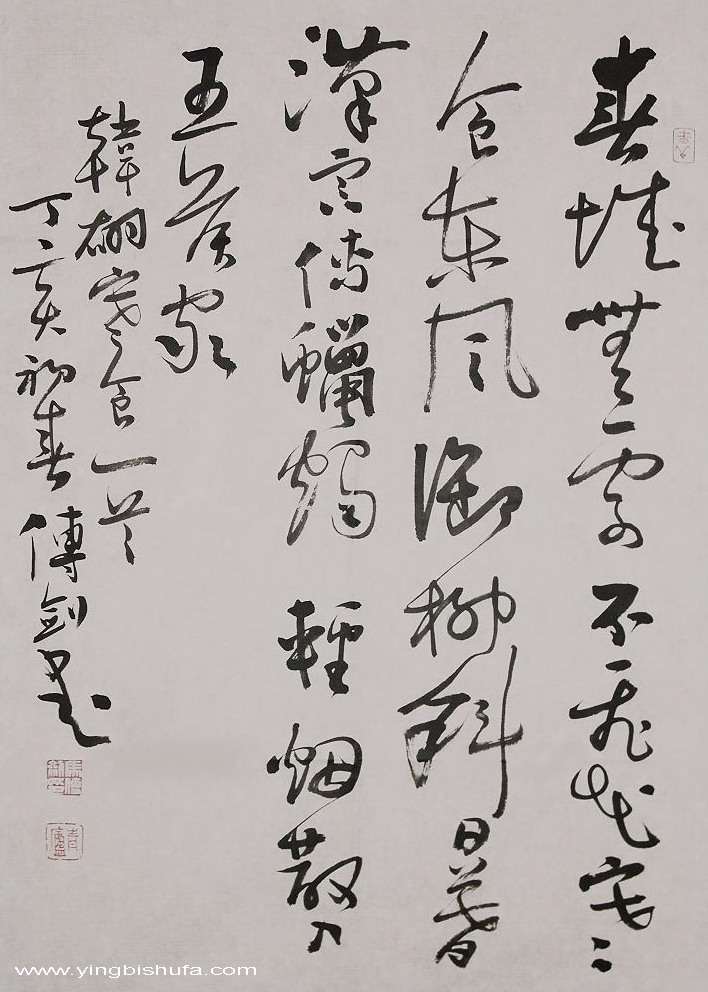 春城無處不飛花寒
食東風御柳斜日暮
漢宮傳蠟燭輕烟散入
五侯家
韓翃寒食一首
丁亥初春傅剑書
www.yingbishufa.com